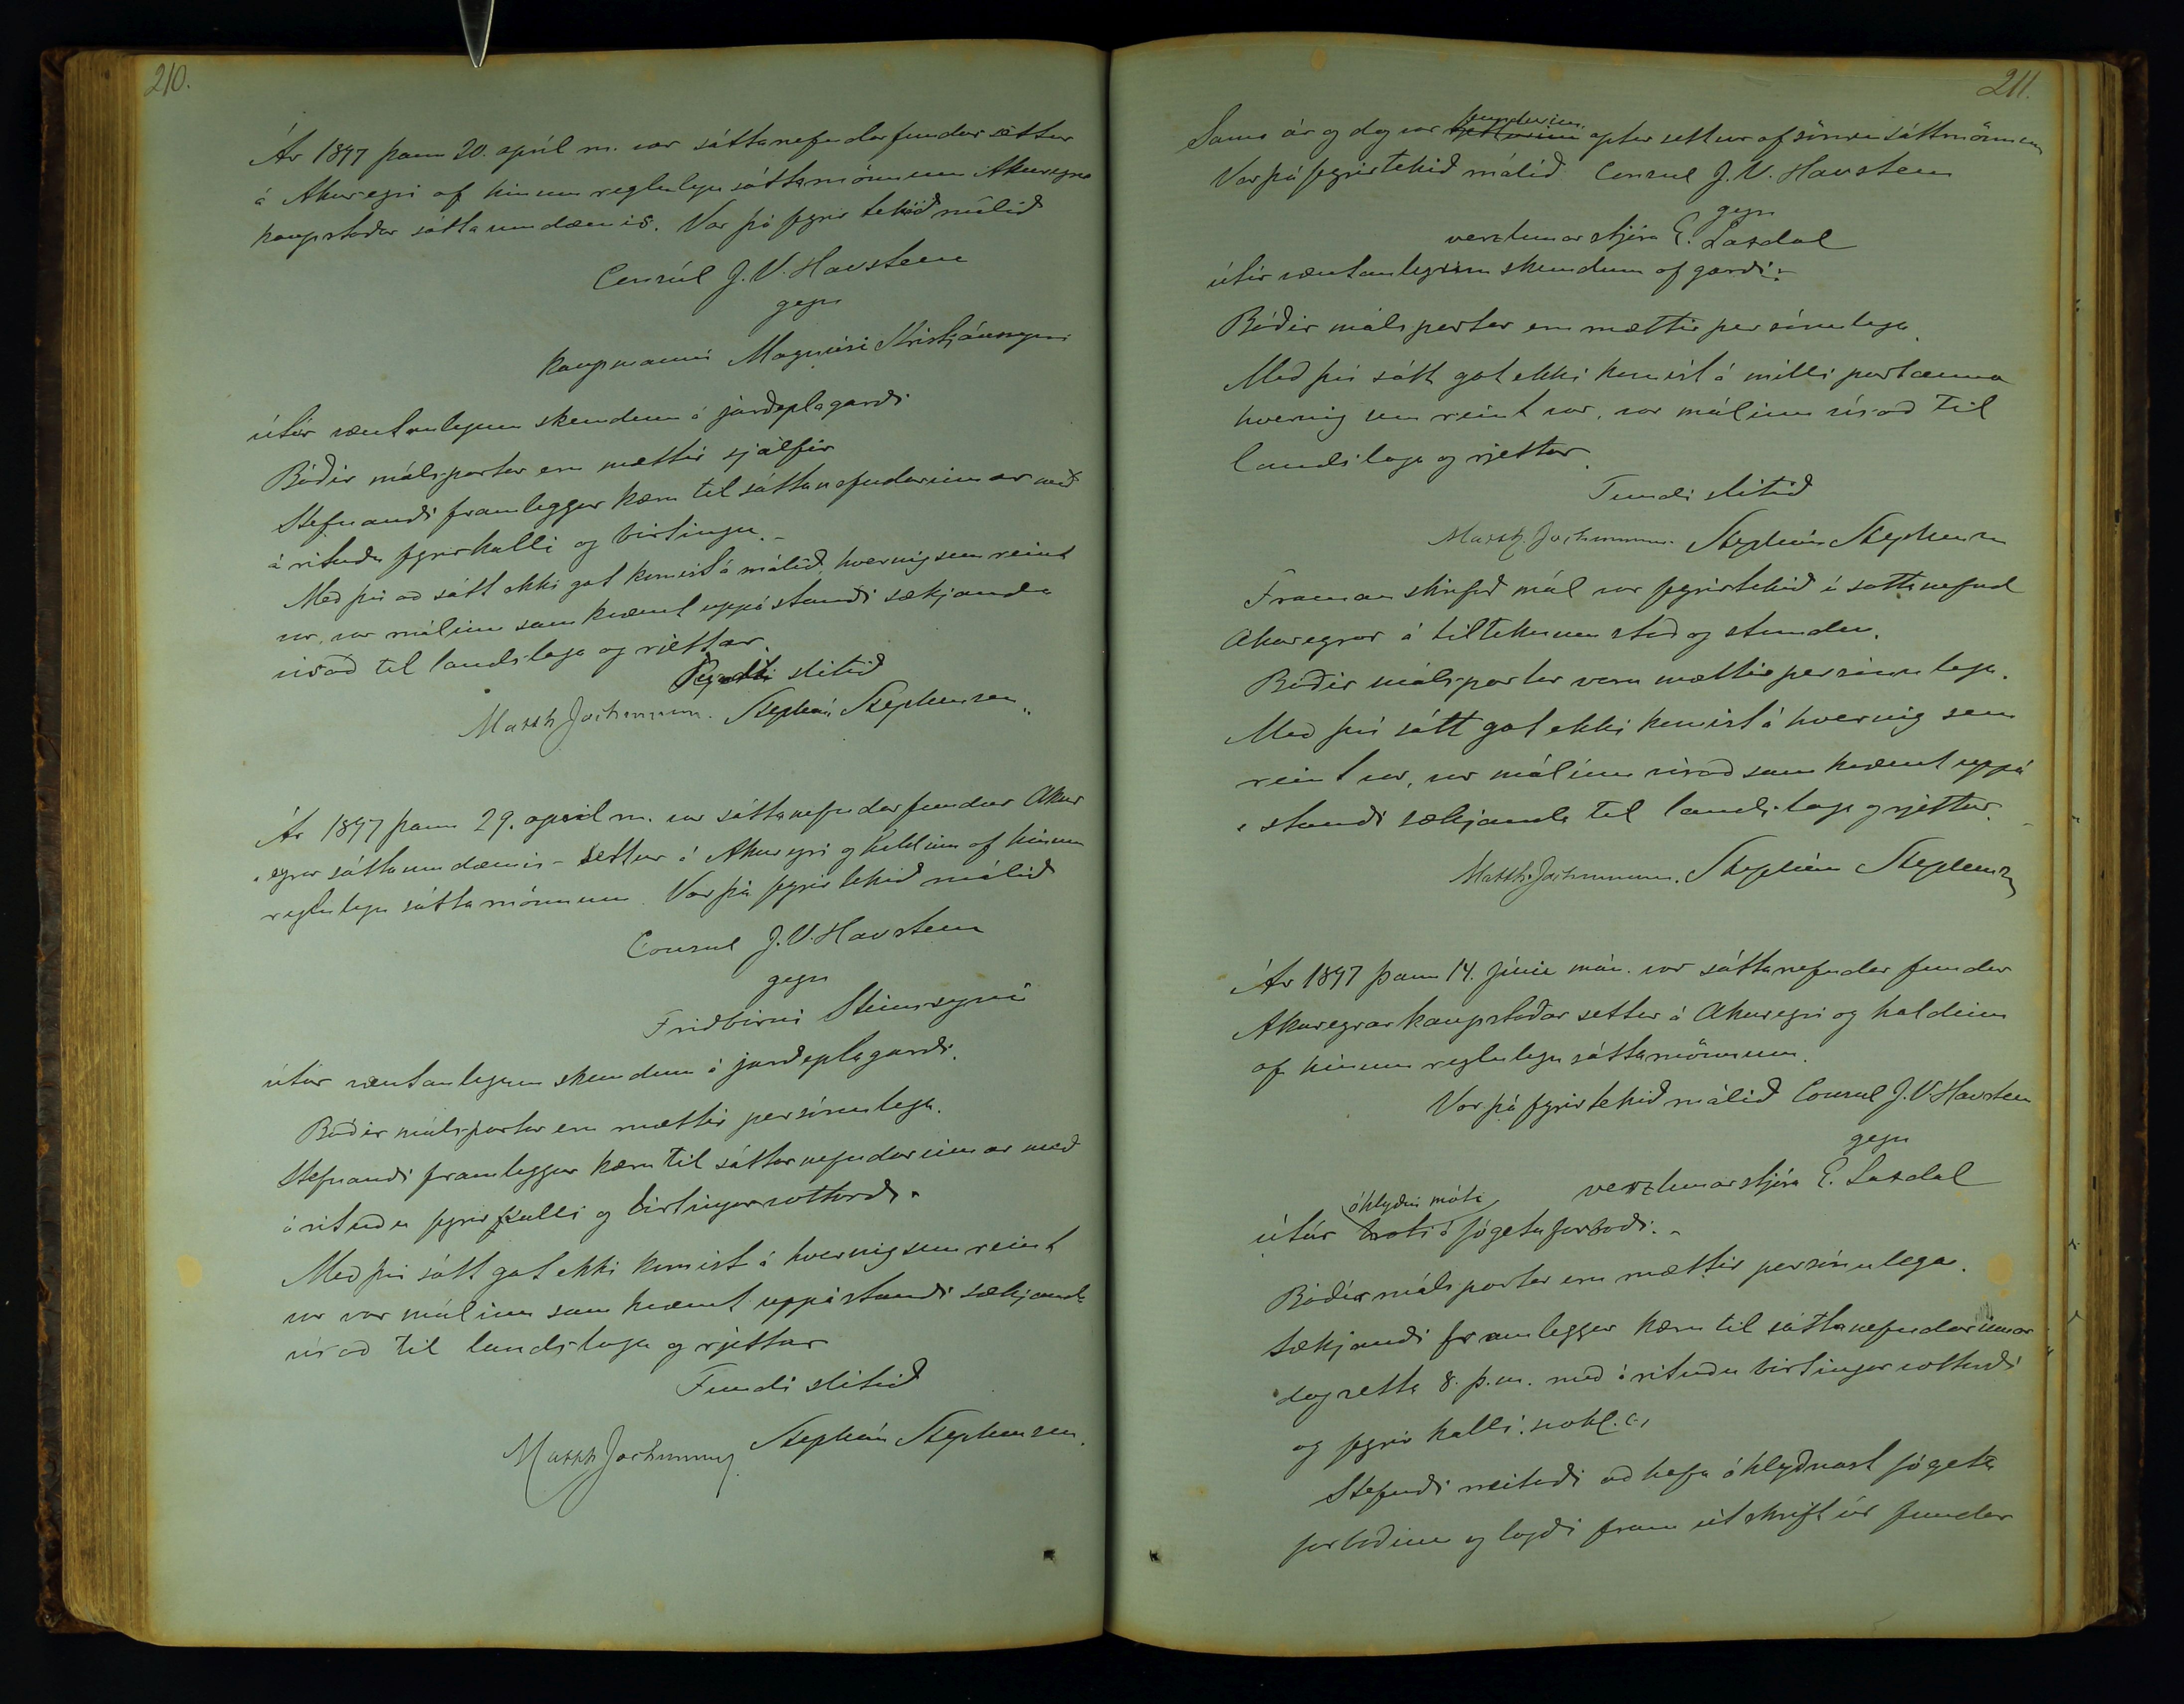 210.
Ár 1897 þann 20. apríl m. var sáttanefndarfundur settur
á Akureyri af hinum reglulegu sáttamönnum Akureyrar
kaupstaðar sáttaumdæmis. Var þá fyrir tekið málið
Consúl J. V. Havsteen
gegn
kaupmanni Magnúsi Kristjánssyni
útúr væntanlegum skemdum á jarðeplagarði
Báðir málspartar eru mættir sjálfir
Stefnandi framleggur kæru til sáttanefndarinnar með
áritaðu fyrirkalli og birtingu.-
Með því að sátt ekki gat komist á málið, hvernig sem reint
var, var málinu samkvæmt uppástandi sækjanda
vísað til landslaga og rjettar.
slitið
Matth Jochumsson. Stephán Stephensen
Ár 1897 þann 29. apríl m. var sáttanefndarfundur Akur
eyrar sáttaumdæmis - settur á Akureyri og haldinn af hinum
reglulegu sáttamönnum. Var þá fyrir tekið málið
Consul J. V. Havsteen
gegn
Friðbirni Steinssyni
útúr væntanlegum skemdum á jarðeplagarði.
Báðir málspartar eru mættir persónulega.
Stefnandi framleggur kæru til sáttanefndarinnar með
árituðu fyrirkalli og birtingarvottorði.
Með því sátt gat ekki komist á hvernig sem reint
var var málinu samkvæmt uppástandi sækjanda
vísað til landslaga og rjettar
Fundi slitið
Matth Jochumsson Stephán Stephensen.
211.
Sama ár og dag var fundurinn aptur settur af sömu sáttmönnum
Var þá fyrirtekið málið Consul J. V. Havsteen
gegn
verzlunarstjóra E. Laxdal
útúr væntanlegum skemdum af garði:
Báðir málspartar eru mættir persónulega
Með því sátt gat ekki komist á milli partanna
hvernig sem reint var, var málinu vísað til
landslaga og rjettar.
Fundi slitið
Matth. Jochumsson Stephán Stephensen
Framanskrifað mál var fyrirtekið í sáttanefnd
Akureyrar á tilteknum stað og stundu.
Báðir málspartar voru mættir persónulega.
Með því sátt gat ekki komist á hvernig sem
reint var, var málinu vísað samkvæmt uppá
standi sækjanda til landslaga og rjettar.
Matth. Jochumsson. Stephán Stephensen
Ár 1897 þann 14. júní mán. var sáttanefndar fundur
Akureyrarkaupstaðar settur á Akureyri og haldinn
af hinum reglulegu sáttamönnum.
Var þá fyrirtekið málið Consul J. V. Havsteen
gegn
verzlunarstjóra E. Laxdal
óhlyðni móti
útúr broti á fógetaforboði. -
Báðir málspartar eru mættir persónulega.
Sækjandi framleggur kæru til sáttanefndarinnar
dagsetta 8. þ. m. með árituðu birtingar vottorði
og fyrir kalli.
Stefndi neitaði að hafa óhlyðnast fógeta
forboðinu og lagði fram útskrift úr fundar